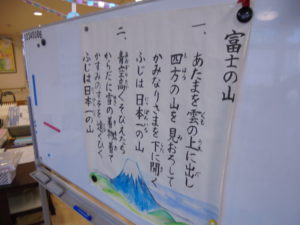 富士の山
一、
あたまを雲の上に出し
四方の山を見おろして
かみなりさまを下に聞く
ふじは日本一の山
二、
青空高くそびえたち
からだに雪の着物着て
かすみのすそを遠くひく
ふじは日本一の山